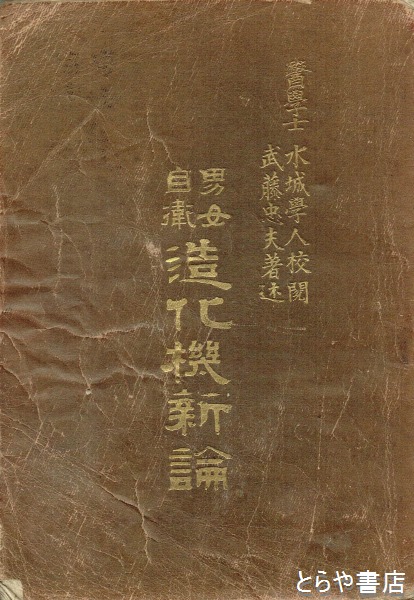 醫學士 水城學人校閲
武藤忠夫著述
男女
自衛
造化機新論
とらや書店